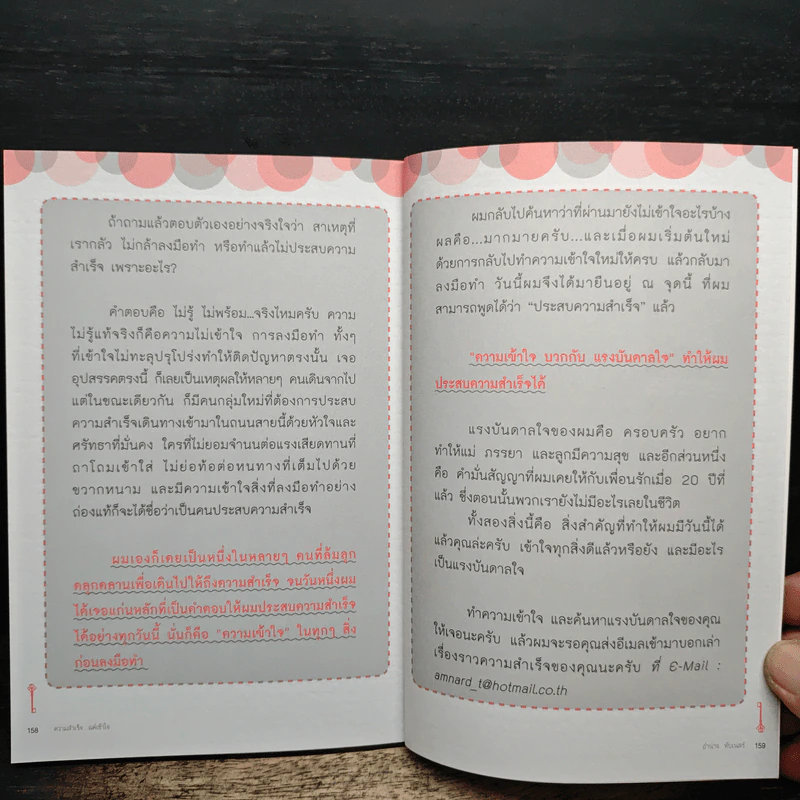 ถ้าถามแล้วตอบตัวเองอย่างจริงใจว่า สาเหตุที่
เรากลัว ไม่กล้าลงมือทำ หรือทำแล้วไม่ประสบความ
สำเร็จ เพราะอะไร?
คำตอบคือ ไม่รู้ ไม่พร้อม...จริงไหมครับ ความ
ไม่รู้แท้จริงก็คือความไม่เข้าใจ การลงมือทำ ทั้งๆ
ที่เข้าใจไม่ทะลุปรุโปร่งทำให้ติดปัญหาตรงนั้น เจอ
อุปสรรคตรงนี้ ก็เลยเป็นเหตุผลให้หลายๆ คนเดินจากไป
แต่ในขณะเดียวกัน ก็มีคนกลุ่มใหม่ที่ต้องการประสบ
ความสำเร็จเดินทางเข้ามาในถนนสายนี้ด้วยหัวใจและ
ศรัทธาที่มั่นคง ใครที่ไม่ยอมจำนนต่อแรงเสียดทานที่
ถาโถมเข้าใส่ ไม่ย่อท้อต่อหนทางที่เต็มไปด้วย
ขวากหนาม และมีความเข้าใจสิ่งที่ลงมือทำอย่าง
ถ่องแท้ก็จะได้ชื่อว่าเป็นคนประสบความสำเร็จ
ผมเองก็เคยเป็นหนึ่งในหลายๆ คนที่ล้มลุก
คลุกคลานเพื่อเดินไปให้ถึงความสำเร็จ จนวันหนึ่งผม
ได้เจอแก่นหลักที่เป็นคำตอบให้ผมประสบความสำเร็จ
ได้อย่างทุกวันนี้ นั่นก็คือ "ความเข้าใจ" ในทุกๆ สิ่ง
ก่อนลงมือทำ
158 ความสำเร็จ แค่เข้าใจ
ผมกลับไปค้นหาว่าที่ผ่านมายังไม่เข้าใจอะไรบ้าง
ผลคือ...มากมายครับ...และเมื่อผมเริ่มต้นใหม่
ด้วยการกลับไปทำความเข้าใจใหม่ให้ครบ แล้วกลับมา
ลงมือทำ วันนี้ผมจึงได้มายืนอยู่ ณ จุดนี้ ที่ผม
สามารถพูดได้ว่า "ประสบความสำเร็จ" แล้ว
"ความเข้าใจ บวกกับ แรงบันดาลใจ" ทำให้ผม
ประสบความสำเร็จได้
แรงบันดาลใจของผมคือ ครอบครัว อยาก
ทำให้แม่ ภรรยา และลูกมีความสุข และอีกส่วนหนึ่ง
คือ คำมั่นสัญญาที่ผมเคยให้กับเพื่อนรักเมื่อ 20 ปีที่
แล้ว ซึ่งตอนนั้นพวกเรายังไม่มีอะไรเลยในชีวิต
ทั้งสองสิ่งนี้คือ สิ่งสำคัญที่ทำให้ผมมีวันนี้ได้
แล้วคุณล่ะครับ เข้าใจทุกสิ่งดีแล้วหรือยัง และมีอะไร
เป็นแรงบันดาลใจ
ทำความเข้าใจ และค้นหาแรงบันดาลใจของคุณ
ให้เจอนะครับ แล้วผมจะรอคุณส่งอีเมลเข้ามาบอกเล่า
เรื่องราวความสำเร็จของคุณนะครับ ที่ E-Mail :
amnard_t@hotmail.co.th
อำนาจ 159